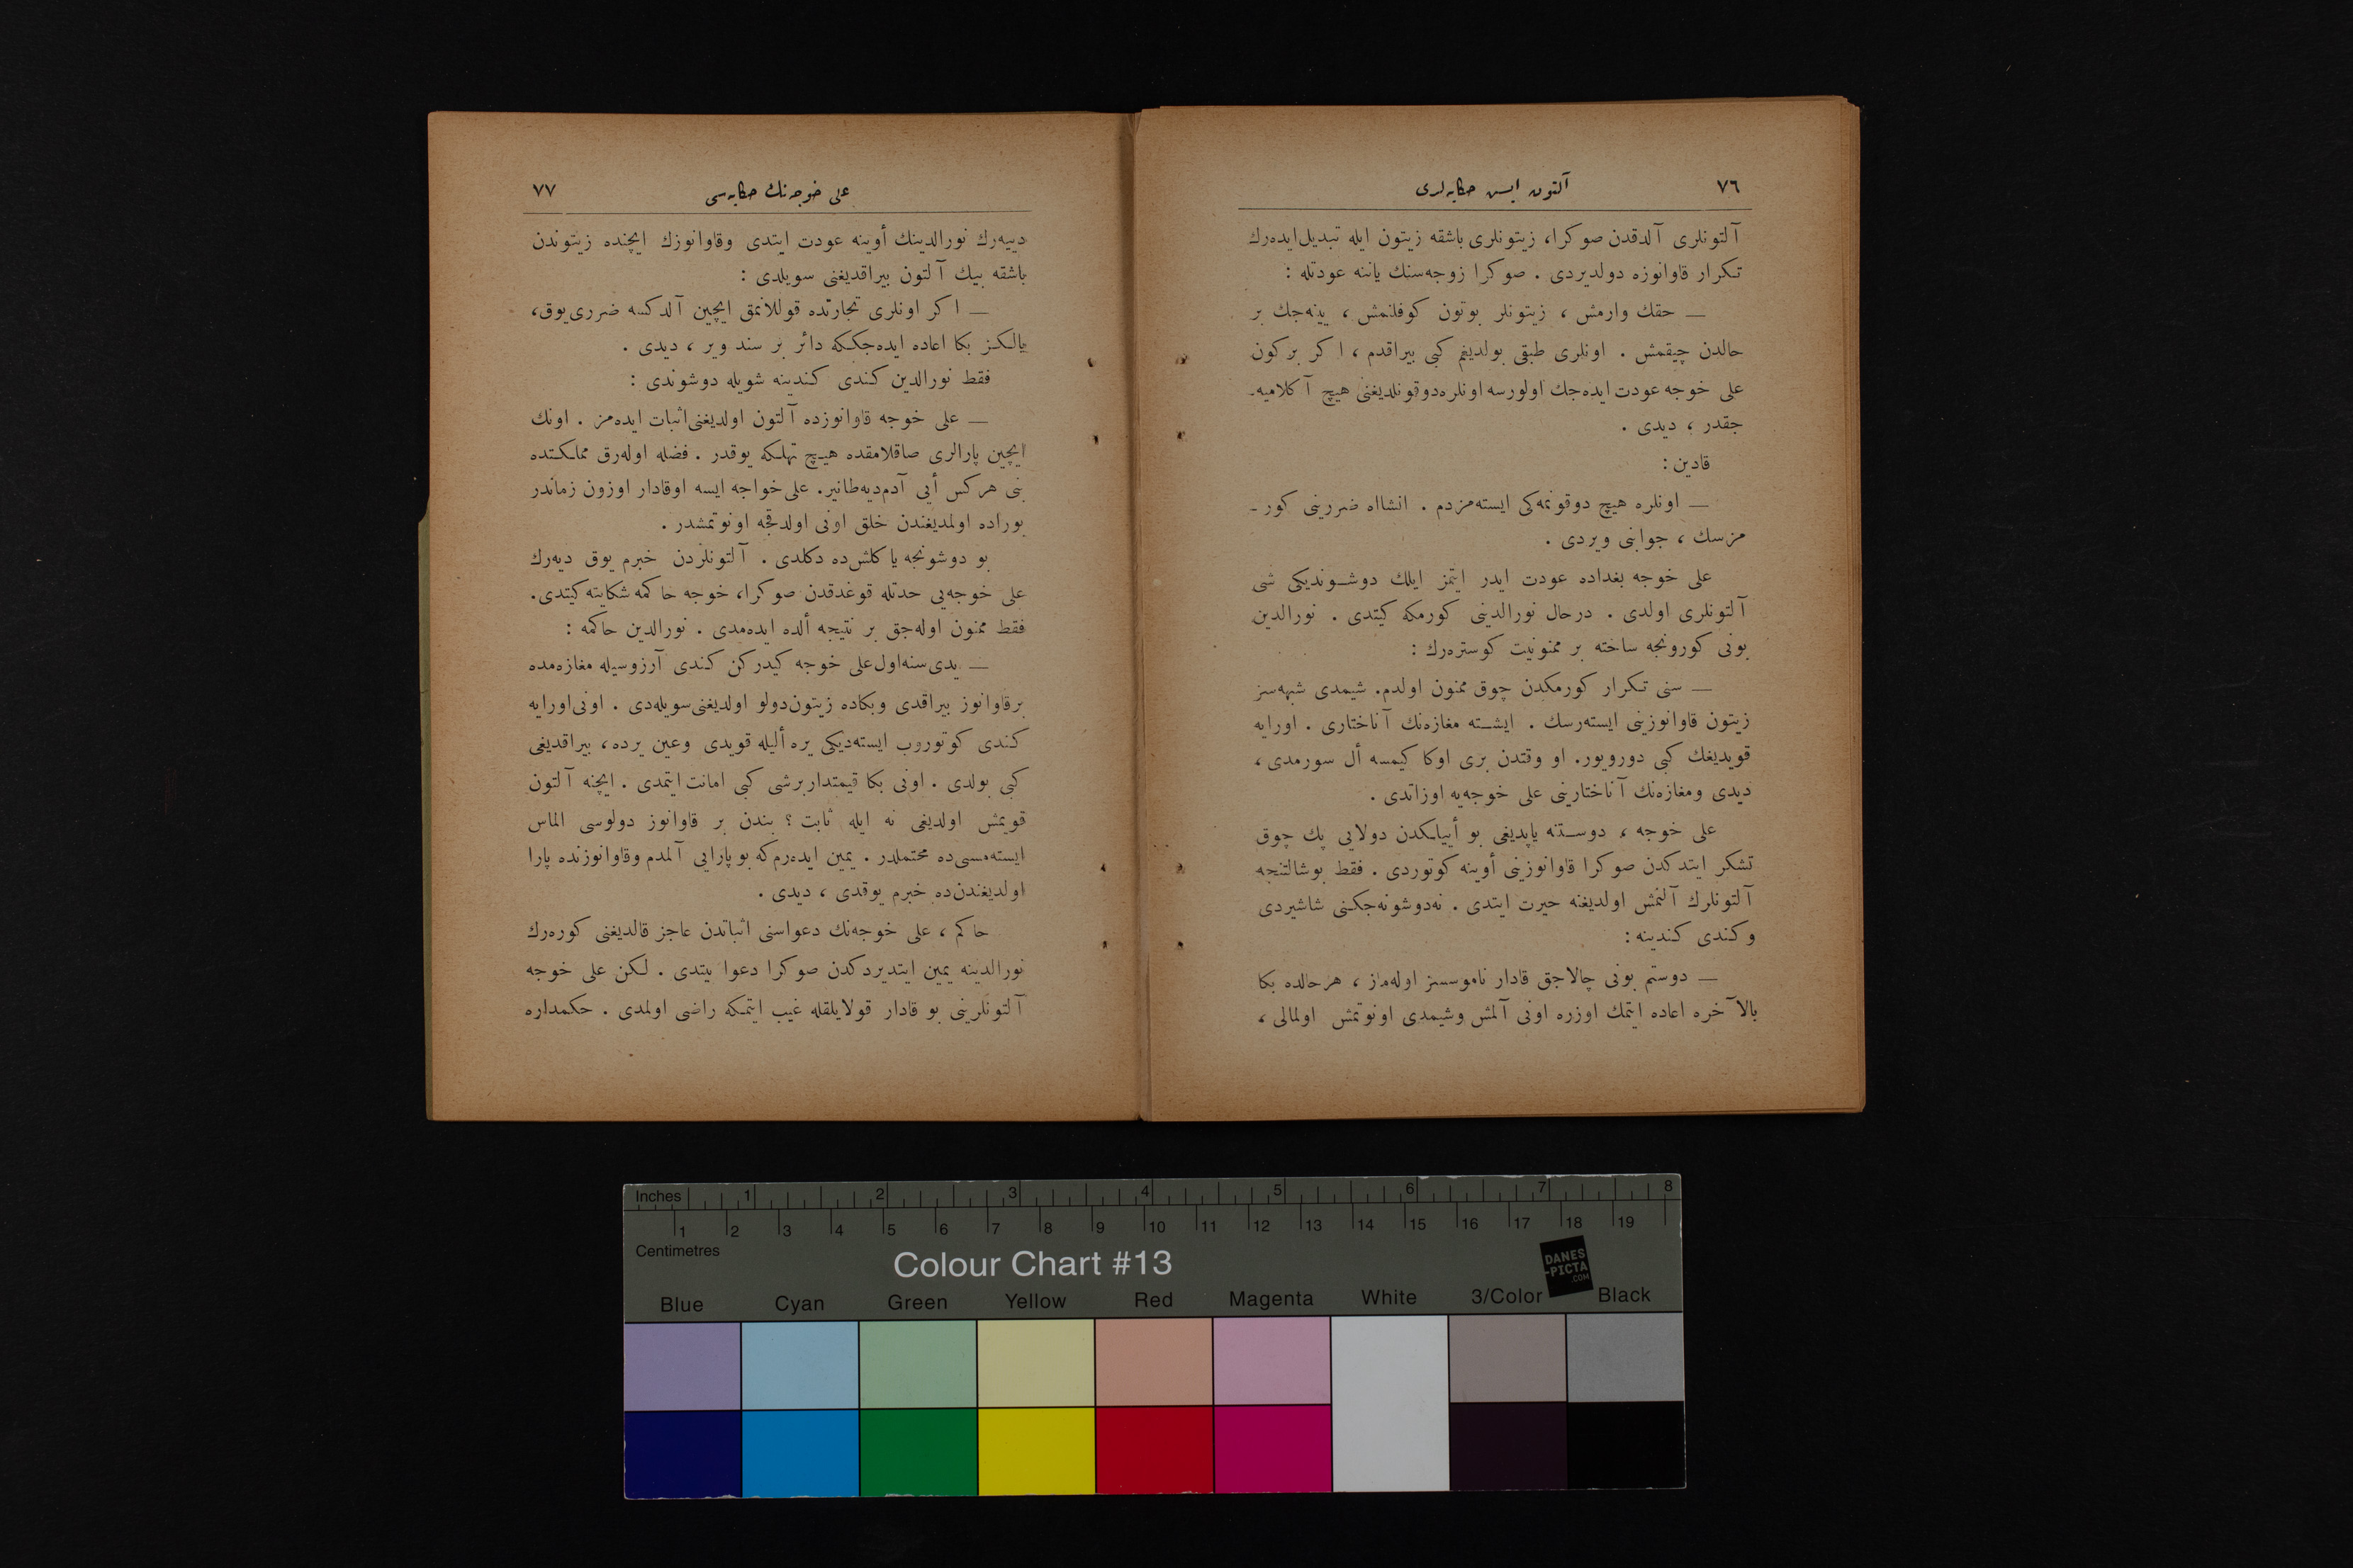 ٧٦
آلتون ایسی حكایه‌لری
آلتونلری آلدقدن صوكرا، زیتونلری باشقه زیتون ایله تبدیل ایده‌رك
تكرار قاوانوزه دولدیردی . صوكرا زوجه‌سنك یاننه عودتله :
— حقك وارمش ، زیتونلر بوتون كوفلنمش ، یینه‌جك بر
حالدن چیقمش . اونلری طبقی بولدیغم كبی بیراقدم ، اكر بر كون
علی خوجه عودت ایده‌جك اولورسه اونلره دوقونلدیغنی هیچ آكلامیه‌ـ
جقدر ، دیدی .
قادین :
— اونلره هیچ دوقونمه‌كی ایسته‌مزدم . انشااه ضررینی كور ـ
مزسك ، جوابنی ویردی .
علی خوجه بغداده عودت ایدر ایتمز ایلك دوشـوندیكی شی
آلتونلری اولدی . درحال نورالدینی كورمكه كیتدی . نورالدین
بونی كورونجه ساخته بر ممنونیت كوستره‌رك :
— سنی تكرار كورمكدن چوق ممنون اولدم. شیمدی شبهه‌سز
زیتون قاوانوزینی ایسته‌رسك . ایشـته مغازه‌نك آناختاری . اورایه
قویدیغك كبی دورویور. او وقتدن بری اوكا كیمسه أل سورمدی ،
دیدی ومغازه‌نك آناختارینی علی خوجه‌یه اوزاتدی .
علی خوجه ، دوسـتنه یاپدیغی بو أییلكدن دولایی پك چوق
تشكر ایتدكدن صوكرا قاوانوزینی أوینه كوتوردی . فقط بوشالتنجه
آلتونلرك آلنمش اولدیغنه حیرت ایتدی . نه‌دوشونه‌جكنی شاشیردی
وكندی كندینه :
— دوستم بونی چالاجق قادار ناموسسز اوله‌ماز ، هر حالده بكا
بالآخره اعاده ایتمك اوزره اونی آلمش وشیمدی اونوتمش اولمالی ،
علی خوجه‌نك حكایه‌سی
٧٧
دییه‌رك نورالدینك أوینه عودت ایتدی وقاوانوزك ایچنده زیتوندن
باشقه بیك آلتون بیراقدیغنی سویلدی :
— اكر اونلری تجارتده قوللانمق ایچین آلدكسه ضرری یوق،
یالكـز بكا اعاده ایده‌جكـكه دائر بر سند ویر ، دیدی .
فقط نورالدین كندی كندینه شویله دوشوندی :
— علی خوجه قاوانوزده آلتون اولدیغنی اثبات ایده‌مز . اونك
ایچین پارالری صاقلامقده هیـچ تهلـكه یوقدر . فضله اوله‌رق مملـكـتده
بنی هركس أیی آدم دیه طانیر. علی خواجه ایسه اوقادار اوزون زماندر
بوراده اولمدیغندن خلق اونی اولدقجه اونوتمشدر .
بو دوشونجه یاكلش ده دكلدی . آلتونلردن خبرم یوق دیه‌رك
علی خوجه‌یی حدتله قوغدقدن صوكرا، خوجه حاكمه شكایته كیتدی.
فقط ممنون اوله‌جق بر نتیجه ألده ایده‌مدی . نورالدین حاكمه :
— یدی سنه اول علی خوجه كیدركن كندی آرزوسیله مغازه‌مده
بر قاوانوز بیراقدی وبكاده زیتون دولو اولدیغنی سویله‌دی . اونی اورایه
كندی كوتوروب ایسته‌دیكی یره ألیله قویدی وعین یرده، بیراقدیغی
كبی بولدی . اونی بكا قیمتدار بر شی كبی امانت ایتمدی . ایچنه آلتون
قویمش اولدیغی نه ایله ثابت ؟ بندن بر قاوانوز دولوسی الماس
ایسته‌مسی ده محتملدر . یمین ایده‌رم كه بو پارایی آلمدم وقاوانوزنده پارا
اولدیغندن ده خبرم یوقدی ، دیدی .
حاكم ، علی خوجه‌نك دعواسنی اثباتدن عاجز قالدیغنی كوره‌رك
نورالدینه یمین ایتدیردكدن صوكرا دعوا بیتدی . لـكن علی خوجه
آلتونلرینی بو قادار قولایلقله غیب ایتمـكه راضی اولمدی . حكمداره
Inches 1 2 3 4 5 6 7 8
1 2 3 4 5 6 7 8 9 10 11 12 13 14 15 16 17 18 19
Centimetres
Colour Chart #13
DANES
-PICTA
.COM
Blue Cyan Green Yellow Red Magenta White 3/Color Black